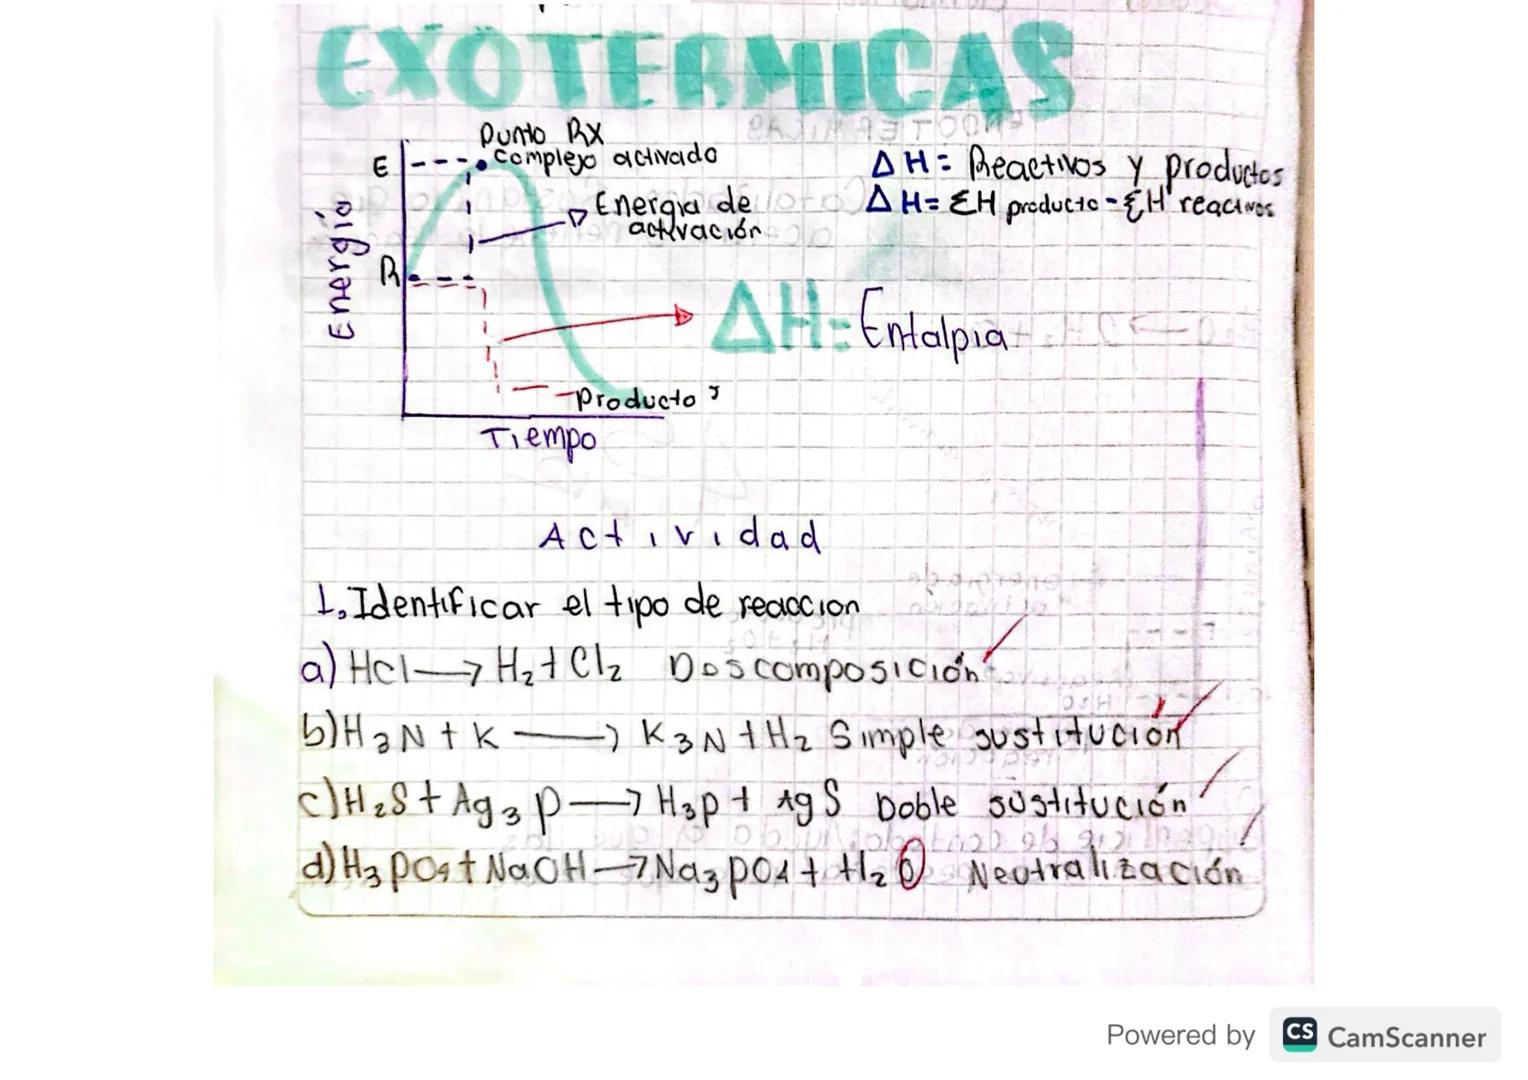 EXOTERMICAS
Punto RX
E
Complejo activado
Energía de
activación
Energía
R
ΔH= Reactivos y productos
ΔH= ΣH producto - ΣH reactivos
ΔH= Entalpia
Productos
Tiempo
Actividad
1. Identificar el tipo de reaccion
a) HCl → H₂ + Cl₂ Descomposición
b) H₃N + K → K₃N + H₂ Simple sustitución
c) H₂S + Ag₃P → H₃P + AgS Doble sustitución
d) H₃PO₄ + NaOH → Na₃PO₄ + H₂O Neutralización
Powered by CS CamScanner